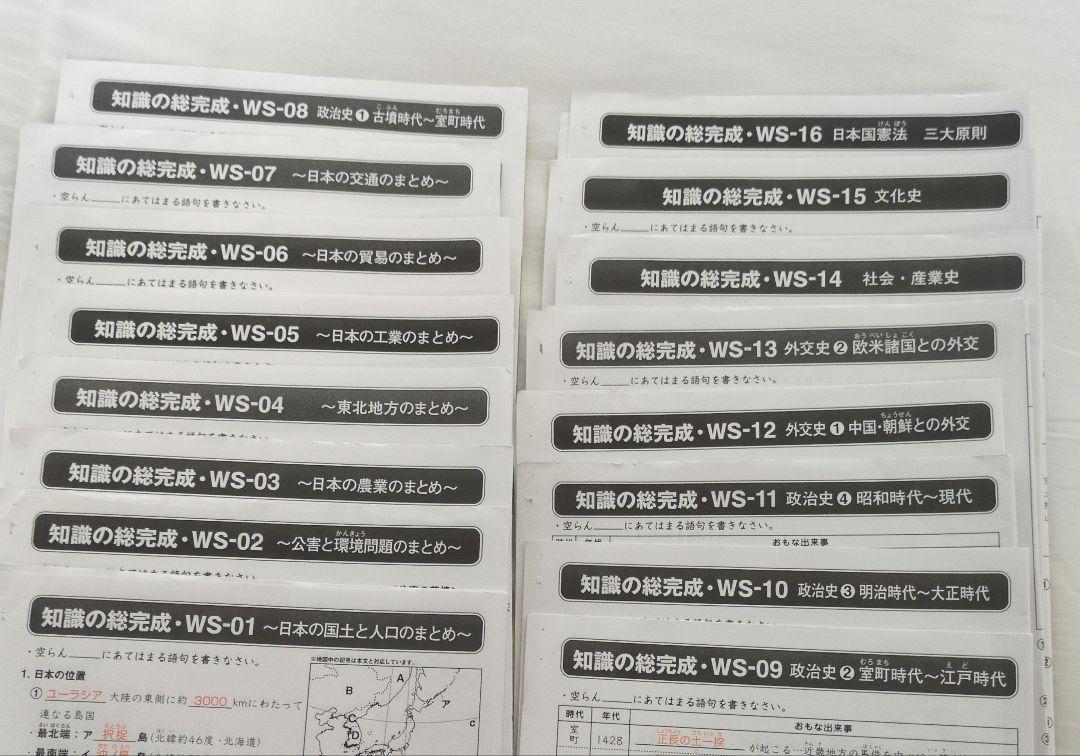 知識の総完成・WS-08 政治史❶古墳時代～室町時代
知識の総完成・WS-07 ～日本の交通のまとめ～
・空らん＿＿＿にあてはまる語句を書きなさい。
知識の総完成・WS-06 ～日本の貿易のまとめ～
・空らん＿＿＿にあてはまる語句を書きなさい。
知識の総完成・WS-05 ～日本の工業のまとめ～
知識の総完成・WS-04 ～東北地方のまとめ～
知識の総完成・WS-03 ～日本の農業のまとめ～
知識の総完成・WS-02 ～公害と環境問題のまとめ～
知識の総完成・WS-01 ～日本の国土と人口のまとめ～
・空らん＿＿＿にあてはまる語句を書きなさい。
※地図中の記号は本文と対応しています。
1. 日本の位置
① ユーラシア 大陸の東側に約 3000 kmにわたって
連なる島国
・最北端：ア 択捉 島（北緯約46度・北海道）
A
B
ア
C
C
D
知識の総完成・WS-16 日本国憲法 三大原則
知識の総完成・WS-15 文化史
・空らん＿＿＿にあてはまる語句を書きなさい。
知識の総完成・WS-14 社会・産業史
知識の総完成・WS-13 外交史❷欧米諸国との外交
・空らん＿＿＿にあてはまる語句を書きなさい。
知識の総完成・WS-12 外交史❶中国・朝鮮との外交
知識の総完成・WS-11 政治史❹昭和時代～現代
・空らん＿＿＿にあてはまる語句を書きなさい。
時代 年代 おもな出来事
知識の総完成・WS-10 政治史❸明治時代～大正時代
知識の総完成・WS-09 政治史❷室町時代～江戸時代
・空らん＿＿＿にあてはまる語句を書きなさい。
時代 年代 おもな出来事
室町 1428 正長の土一揆 が起こる…近畿地方の